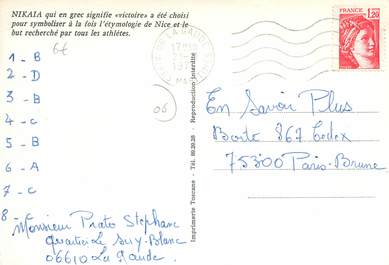 NIKAIA qui en grec signifie «victoire» a été choisi
pour symboliser à la fois l'étymologie de Nice et le
but recherché par tous les athlètes.
6€
1 - B
2 - D
3 - B
4 - C
5 - B
6 - A
7 - C
8 Monsieur Prato Stephane
Quartier Le Suy-Blanc
06610 La Gaude
06
Imprimerie Toscane - Tél. 89.20.28 - Reproduction interdite
17
FRANCE
1,20
En Savoir Plus
Boite 867 Cedex
75300 Paris-Brune